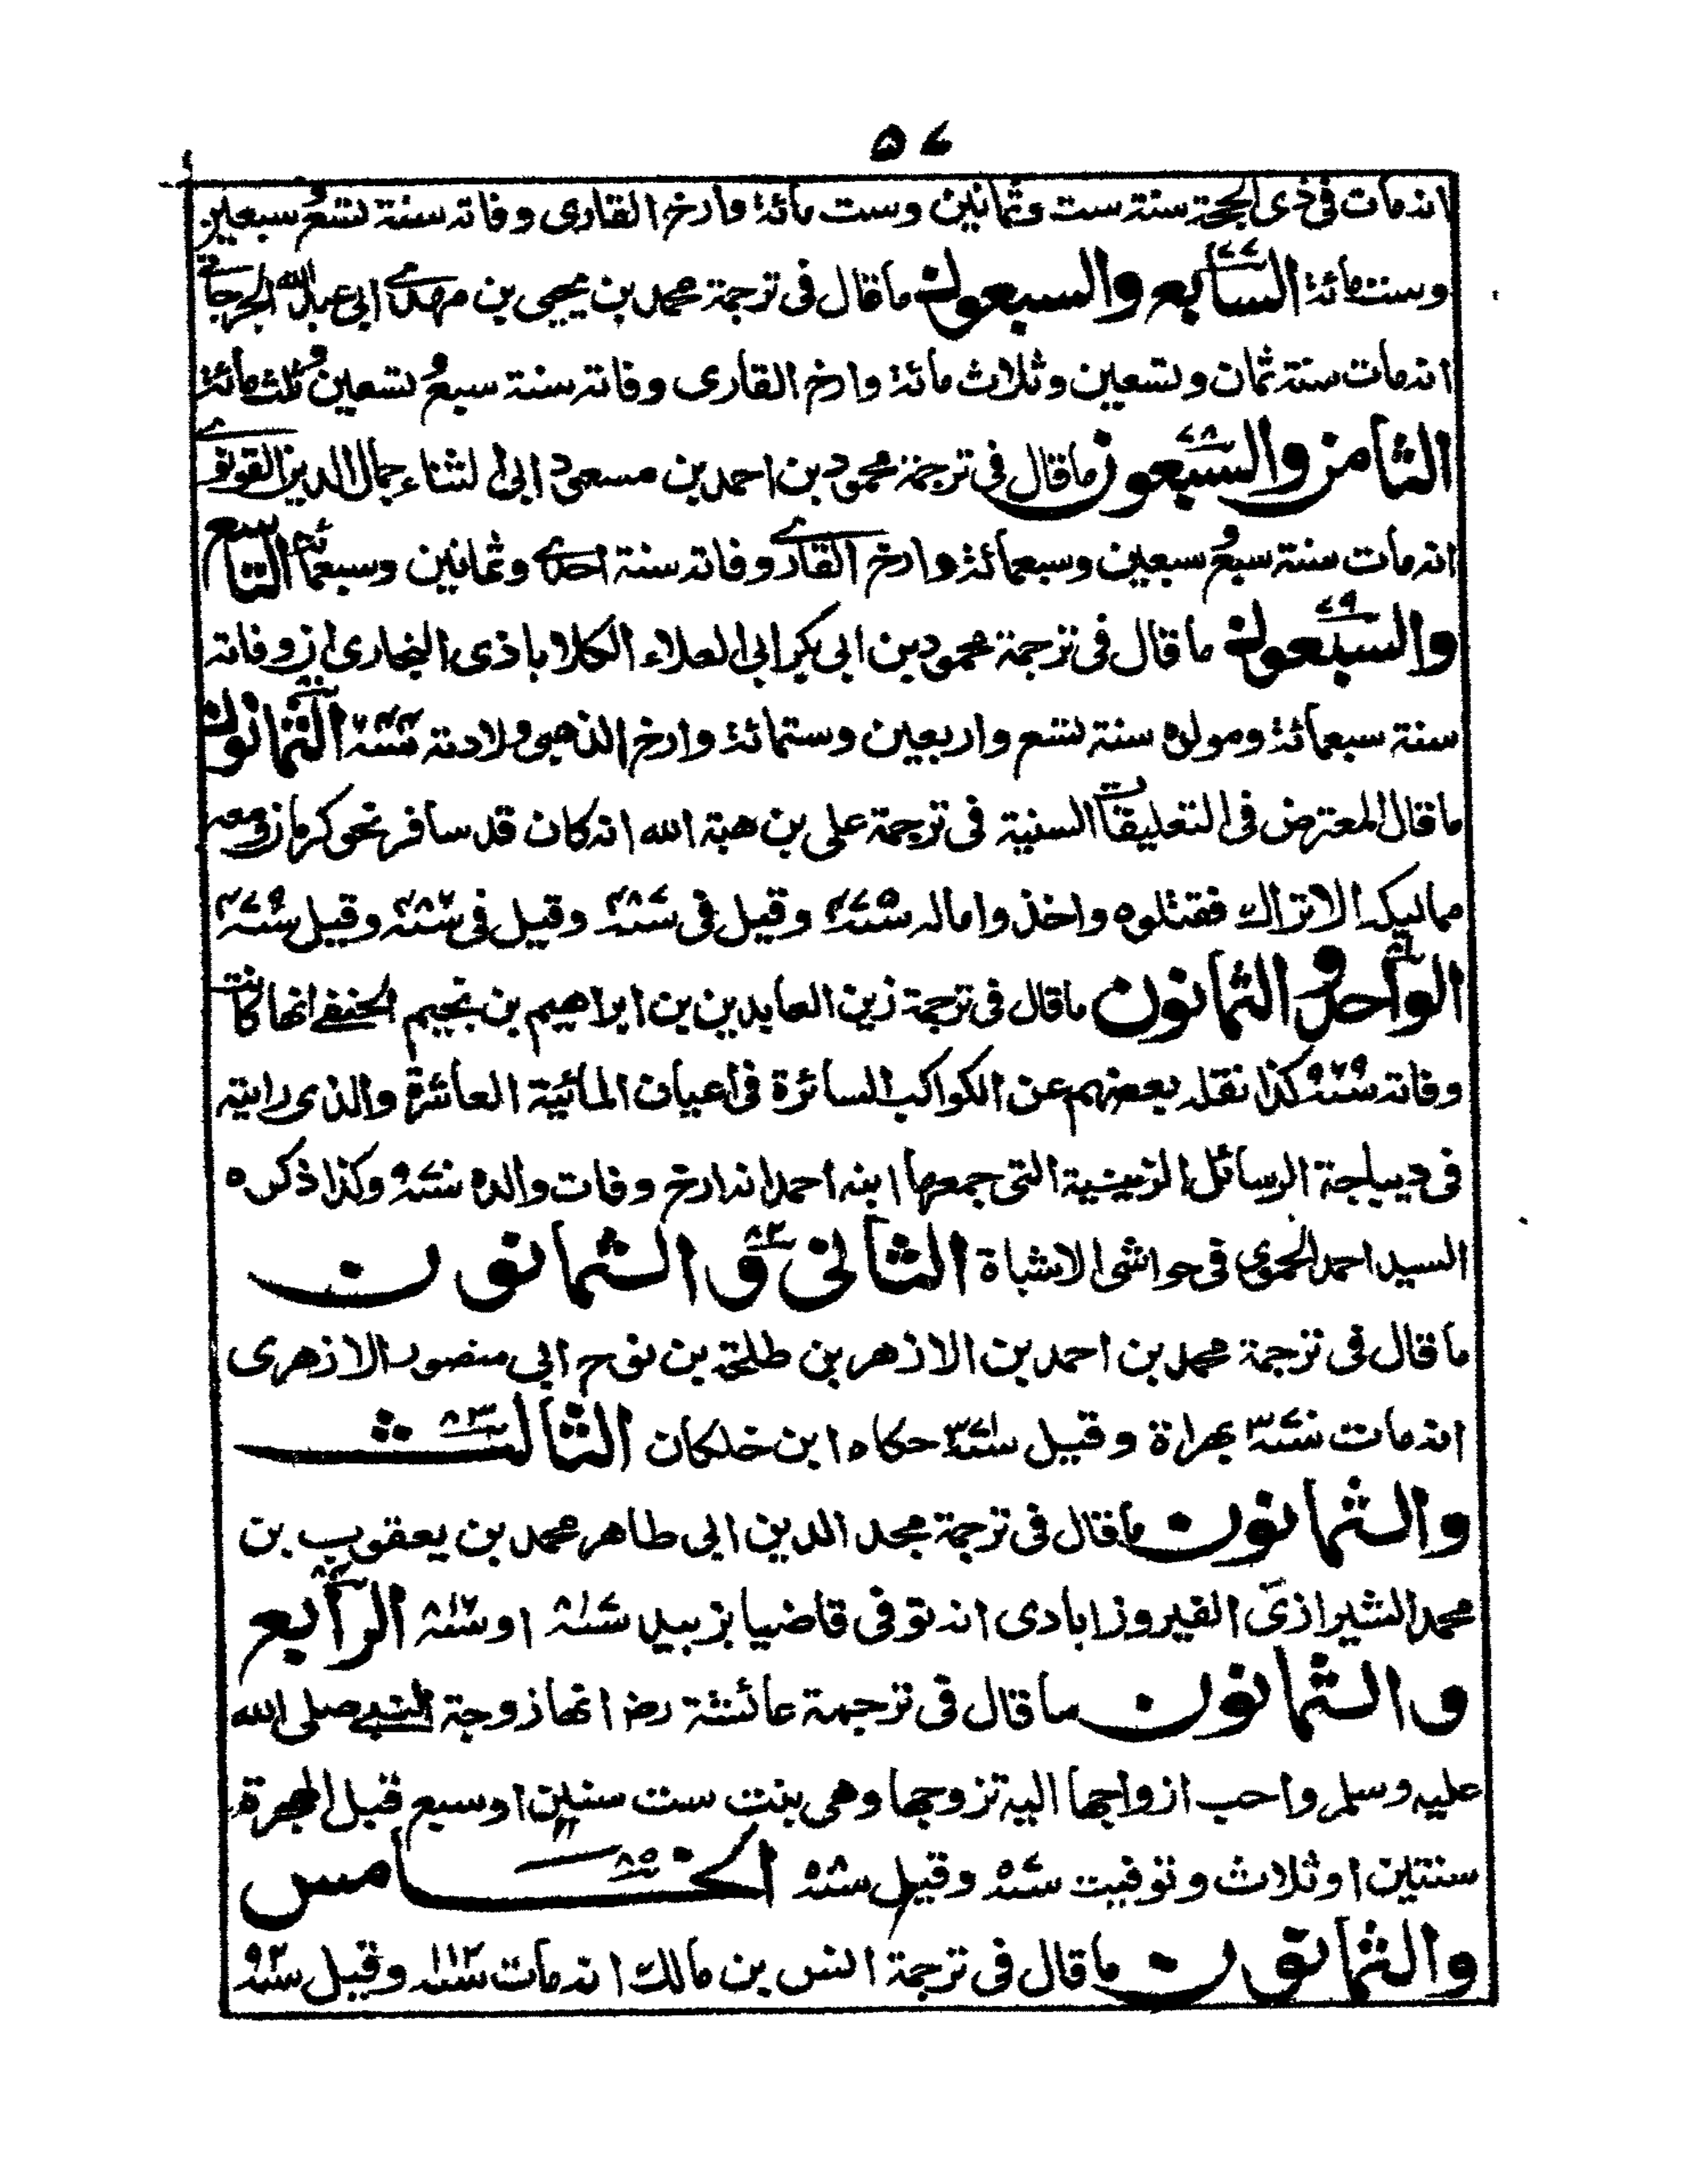 ٥٧
انه مات فى ذى الحجة سنة ست وثمانين وست مائة وارخ القارى وفاته سنة تسع وسبعين
وست مائة السابع والسبعون ما قال فى ترجمة محمد بن يحيى بن مهدى ابى عبد الله الجرجانى
انه مات سنة ثمان وتسعين وثلاث مائة وارخ القارى وفاته سنة سبع وتسعين وثلث مائة
الثامن والسبعون ما قال فى ترجمة محمود بن احمد بن مسعود ابى الثناء جمال الدين القونوى
انه مات سنة سبع وسبعين وسبعمائة وارخ القارى وفاته سنة احدى وثمانين وسبعمائة التاسع
والسبعون ما قال فى ترجمة محمود بن ابى بكر ابى العلاء الكلاباذى البخارى ان وفاته
سنة سبعمائة ومولده سنة تسع واربعين وستمائة وارخ الذهبى ولادته الثمانون
ما قال المعترض فى التعليقات السنية فى ترجمة على بن هبة الله انه كان قد سافر نحو كرمان ومعه
مماليكه الاتراك فقتلوه واخذوا ماله وقيل فى وقيل فى وقيل
الواحد والثمانون ما قال فى ترجمة زين العابدين بن ابراهيم بن نجيم الحنفى انها كانت
وفاته كذا نقله بعضهم عن الكواكب السائرة فى اعيان المائية العاشرة والذى رايته
فى ديباجة الرسائل الزينية التى جمعها ابنه احمد انه ارخ وفات والده سنه ٩٧٠ وكذا ذكره
السيد احمد الحموى فى حواشى الاشباة الثانى و الثمانون ٨٢
ما قال فى ترجمة محمد بن احمد بن الازهر بن طلحة بن نوح ابى منصور الازهرى
انه مات سنه ٣٧٠ بهراة وقيل سنه ٣٧١ حكاه ابن خلكان الثالث ٨٣
والثمانون ما قال فى ترجمة مجد الدين ابى طاهر محمد بن يعقوب بن
محمد الشيرازى الفيروزابادى انه توفى قاضيا بزبيد سنه ٨١٧ او سنه ٨١٦ الرابع ٨٤
والثمانون ما قال فى ترجمة عائشة رض انها زوجة النبى صلى الله
عليه وسلم واحب ازواجها اليه تزوجها وهى بنت ست سنين او سبع قبل الهجرة
سنتين او ثلاث وتوفيت سنه ٥٧ وقيل سنه ٥٨ الخامس ٨٥
والثمانون ما قال فى ترجمة انس بن مالك انه مات وقيل